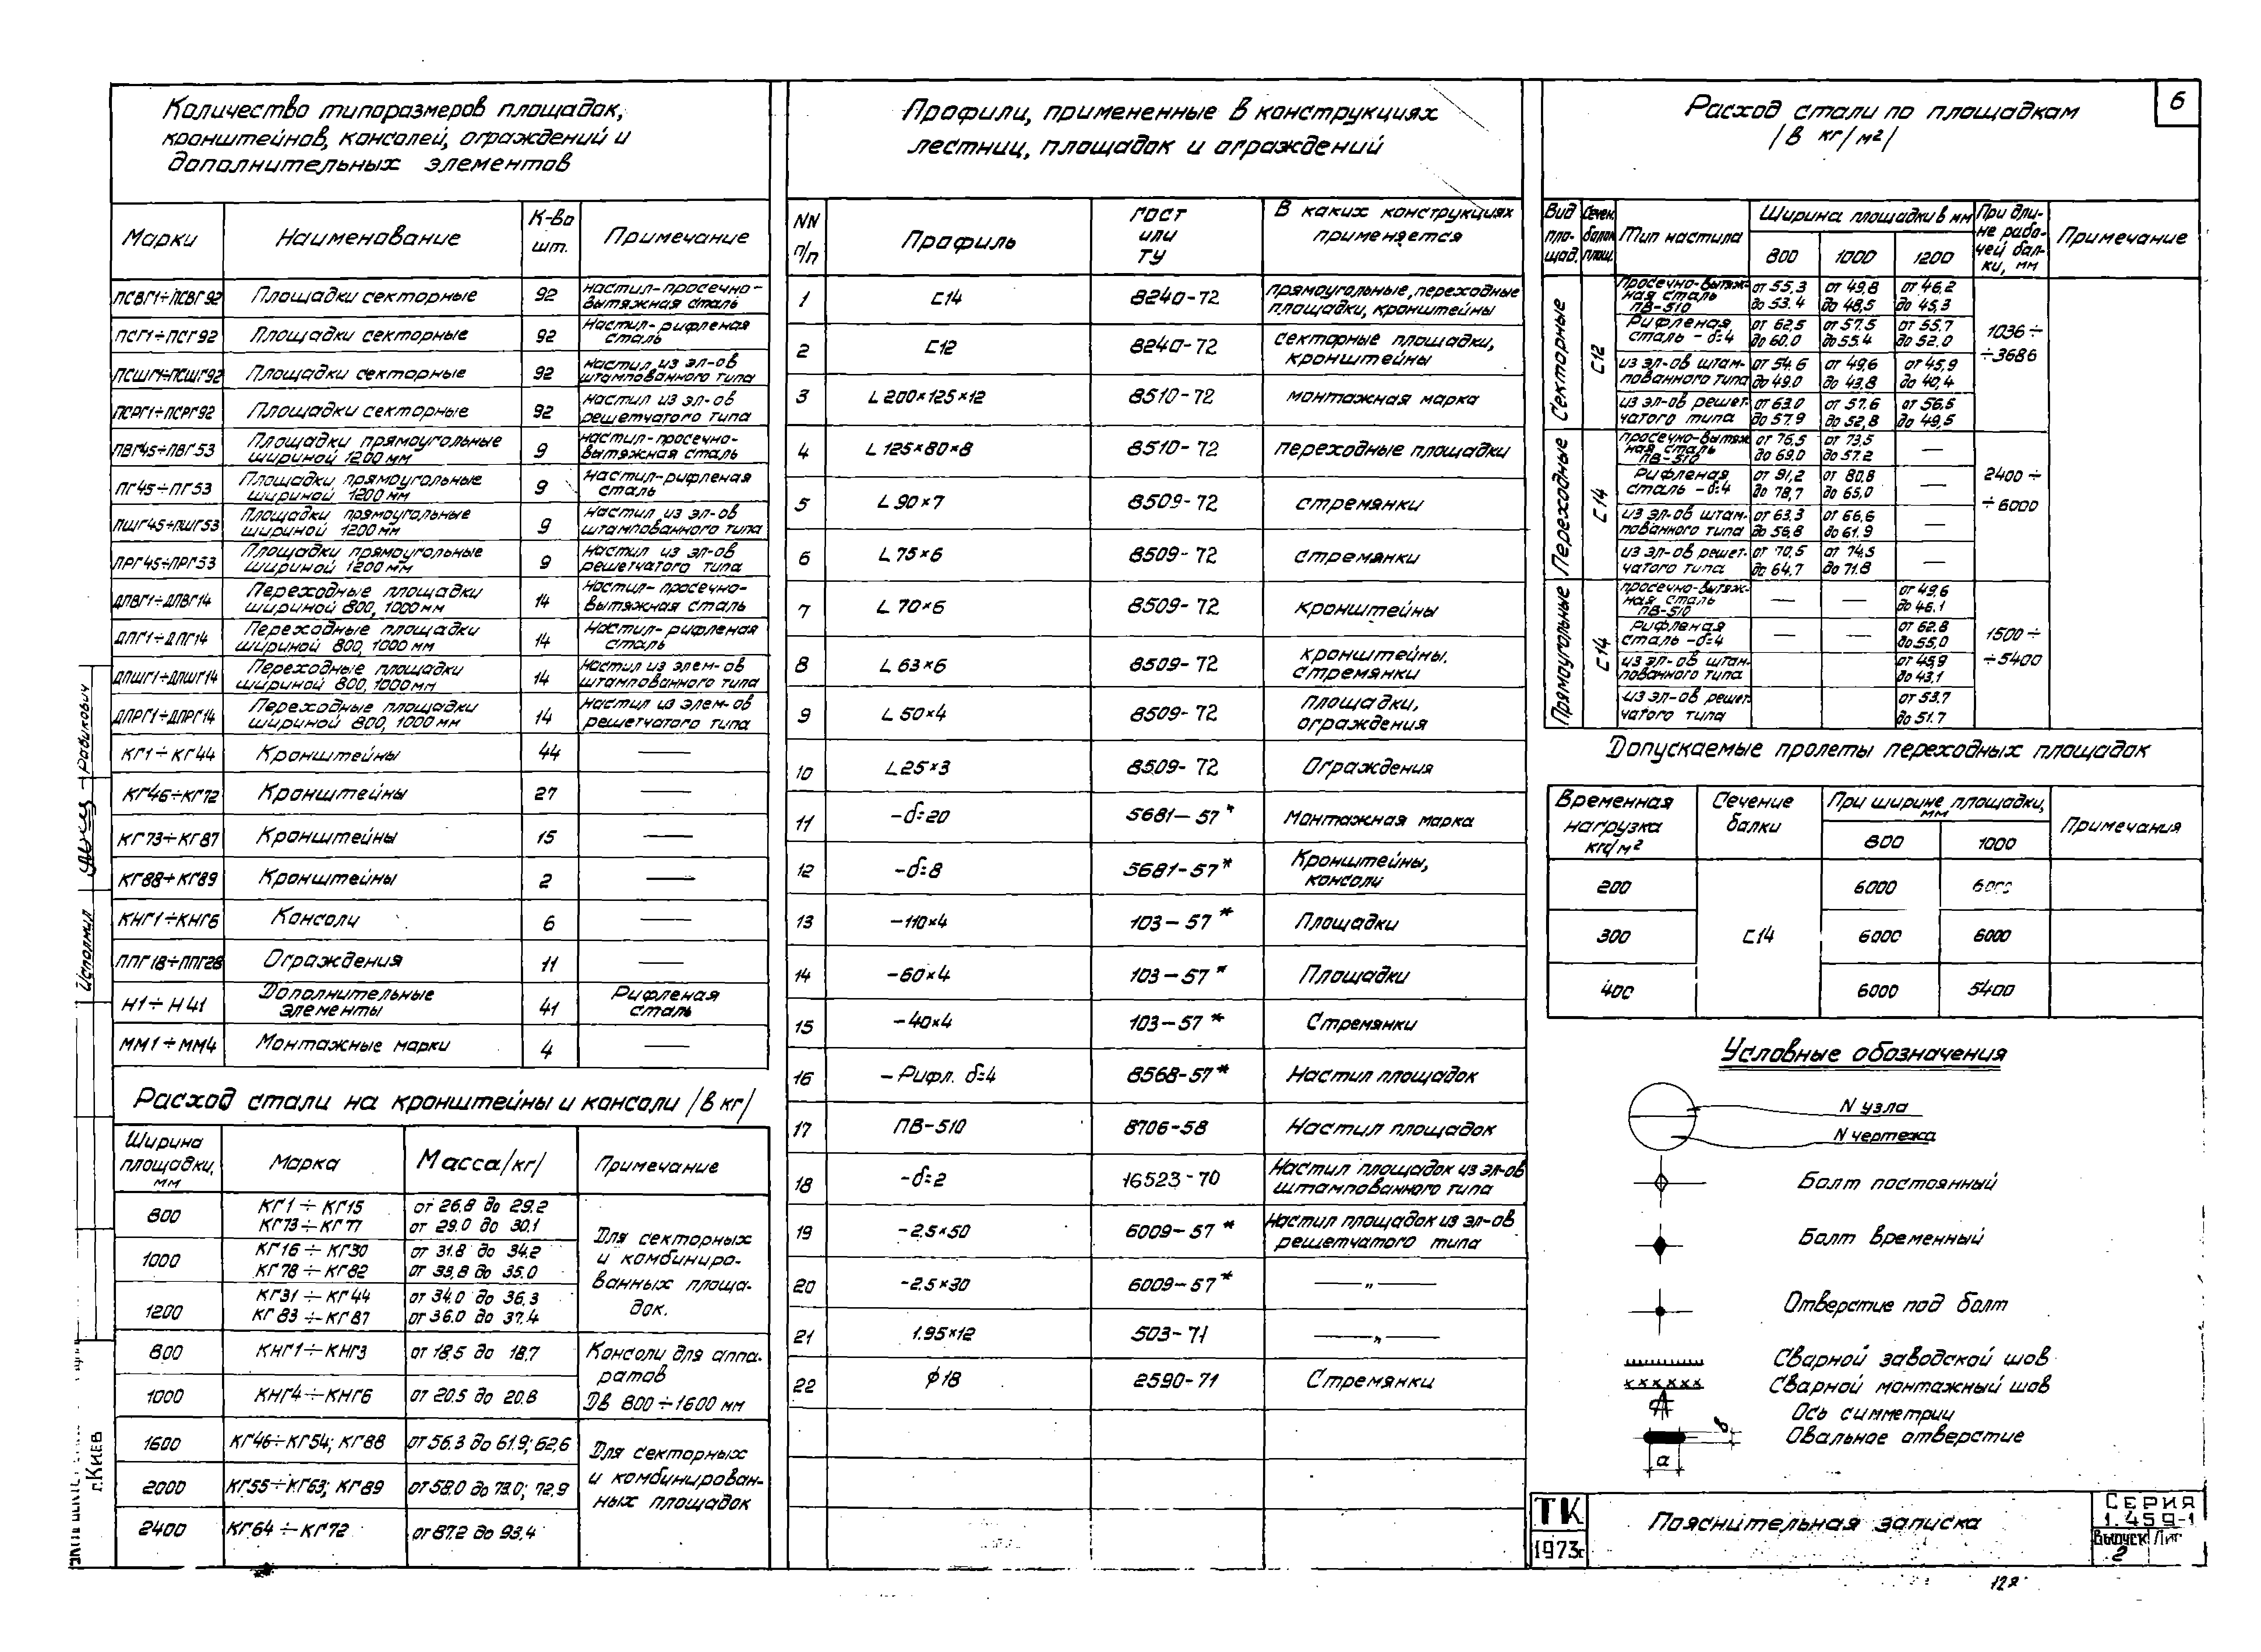 6
Количество типоразмеров площадок,
кронштейнов, консолей, ограждений и
дополнительных элементов
Марки | Наименование | К-во шт. | Примечание
ПСВГ1÷ПСВГ92 | Площадки секторные | 92 | настил-просечно-вытяжная сталь
ПСГ1÷ПСГ92 | Площадки секторные | 92 | Настил-рифленая сталь
ПСШГ1÷ПСШГ92 | Площадки секторные | 92 | настил из эл-ов штампованного типа
ПСРГ1÷ПСРГ92 | Площадки секторные | 92 | настил из эл-ов решетчатого типа
ПВГ45÷ПВГ53 | Площадки прямоугольные шириной 1200 мм | 9 | настил-просечно-вытяжная сталь
ПГ45÷ПГ53 | Площадки прямоугольные шириной 1200 мм | 9 | Настил-рифленая сталь
ПШГ45÷ПШГ53 | Площадки прямоугольные шириной 1200 мм | 9 | Настил из эл-ов штампованного типа
ПРГ45÷ПРГ53 | Площадки прямоугольные шириной 1200 мм | 9 | Настил из эл-ов решетчатого типа
ДПВГ1÷ДПВГ14 | Переходные площадки шириной 800, 1000 мм | 14 | Настил-просечно-вытяжная сталь
ДПГ1÷ДПГ14 | Переходные площадки шириной 800, 1000 мм | 14 | Настил-рифленая сталь
ДПШГ1÷ДПШГ14 | Переходные площадки шириной 800, 1000 мм | 14 | Настил из элем-ов штампованного типа
ДПРГ1÷ДПРГ14 | Переходные площадки шириной 800, 1000 мм | 14 | Настил из элем-ов решетчатого типа
КГ1÷КГ44 | Кронштейны | 44 | —
КГ46÷КГ72 | Кронштейны | 27 | —
КГ73÷КГ87 | Кронштейны | 15 | —
КГ88÷КГ89 | Кронштейны | 2 | —
КНГ1÷КНГ6 | Консоли | 6 | —
ППГ18÷ППГ28 | Ограждения | 11 | —
Н1÷Н41 | Дополнительные элементы | 41 | Рифленая сталь
ММ1÷ММ4 | Монтажные марки | 4 | —
Расход стали на кронштейны и консоли /в кг/
Ширина площадки, мм | Марка | Масса/кг/ | Примечание
800 | КГ1÷КГ15 | от 26.8 до 29.2
КГ73÷КГ77 | от 29.0 до 30.1
1000 | КГ16÷КГ30 | от 31.8 до 34.2
КГ78÷КГ82 | от 33,8 до 35.0
1200 | КГ31÷КГ44 | от 34.0 до 36,3
КГ83÷КГ87 | от 36.0 до 37,4
Для секторных и комбинированных площадок.
800 | КНГ1÷КНГ3 | от 18,5 до 18,7
1000 | КНГ4÷КНГ6 | от 20.5 до 20,8
Консоли для аппаратов Dв 800÷1600 мм
1600 | КГ46÷КГ54; КГ88 | от 56.3 до 61.9; 62,6
2000 | КГ55÷КГ63; КГ89 | от 58.0 до 73.0; 72.9
2400 | КГ64÷КГ72 | от 87.2 до 93,4
Для секторных и комбинированных площадок
Профили, примененные в конструкциях
лестниц, площадок и ограждений
NN п/п | Профиль | ГОСТ или ТУ | В каких конструкциях применяется
1 | С14 | 8240-72 | прямоугольные, переходные площадки, кронштейны
2 | С12 | 8240-72 | секторные площадки, кронштейны
3 | L 200×125×12 | 8510-72 | монтажная марка
4 | L 125×80×8 | 8510-72 | переходные площадки
5 | L 90×7 | 8509-72 | стремянки
6 | L 75×6 | 8509-72 | стремянки
7 | L 70×6 | 8509-72 | кронштейны
8 | L 63×6 | 8509-72 | кронштейны, стремянки
9 | L 50×4 | 8509-72 | площадки, ограждения
10 | L 25×3 | 8509-72 | Ограждения
11 | -δ=20 | 5681-57* | Монтажная марка
12 | -δ=8 | 5681-57* | Кронштейны, консоли
13 | -110×4 | 103-57* | Площадки
14 | -60×4 | 103-57* | Площадки
15 | -40×4 | 103-57* | Стремянки
16 | -Рифл. δ=4 | 8568-57* | Настил площадок
17 | ПВ-510 | 8706-58 | Настил площадок
18 | -δ=2 | 16523-70 | Настил площадок из эл-ов штампованного типа
19 | -2.5×50 | 6009-57* | Настил площадок из эл-ов решетчатого типа
20 | -2.5×30 | 6009-57* | —„—
21 | 1.95×12 | 503-71 | —„—
22 | ϕ18 | 2590-71 | Стремянки
Расход стали по площадкам
/в кг/м²/
Вид площад. | Сечен. балок площ. | Тип настила | Ширина площадки в мм | При длине рабочей балки, мм | Примечание
800 | 1000 | 1200
Секторные | С12 | 1036÷÷3686
Просечно-вытяжная сталь ПВ-510 | от 55.3 до 53.4 | от 49,8 до 48,5 | от 46,2 до 45,3
Рифленая сталь-δ=4 | от 62,5 до 60.0 | от 57.5 до 55.4 | от 55.7 до 52.0
из эл-ов штампованного типа | от 54.6 до 49.0 | от 49,6 до 43,8 | от 45,9 до 40,4
из эл-ов решетчатого типа | от 63.0 до 57.9 | от 57,6 до 52,8 | от 56,5 до 49,5
Переходные | С14 | 2400÷÷6000
просечно-вытяжная сталь ПВ-510 | от 76,5 до 69.0 | от 73,5 до 57.2 | —
Рифленая сталь-δ=4 | от 91,2 до 78,7 | от 80,8 до 65,0 | —
из эл-ов штампованного типа | от 63.3 до 56,8 | от 66,6 до 61.9 | —
из эл-ов решетчатого типа | от 70,5 до 64.7 | от 74,5 до 71.8 | —
Прямоугольные | С14 | 1500÷÷5400
просечно-вытяжная сталь ПВ-510 | — | — | от 49,6 до 46.1
рифленая сталь-δ=4 | — | — | от 62.8 до 55,0
из эл-ов штампованного типа | от 45,9 до 43,1
из эл-ов решетчатого типа | от 53.7 до 51.7
Допускаемые пролеты переходных площадок
Временная нагрузка кгс/м² | Сечение балки | При ширине площадки, мм | Примечания
800 | 1000
200 | 6000 | 6000
300 | С14 | 6000 | 6000
400 | 6000 | 5400
Условные обозначения
N узла
N чертежа
Болт постоянный
Болт временный
Отверстие под болт
Сварной заводской шов
Сварной монтажный шов
Ось симметрии
Овальное отверстие
в
а
ТК
1973г
Пояснительная записка
Серия
1.459-1
Выпуск
2
Исполнил
Рабинович
г.Киев